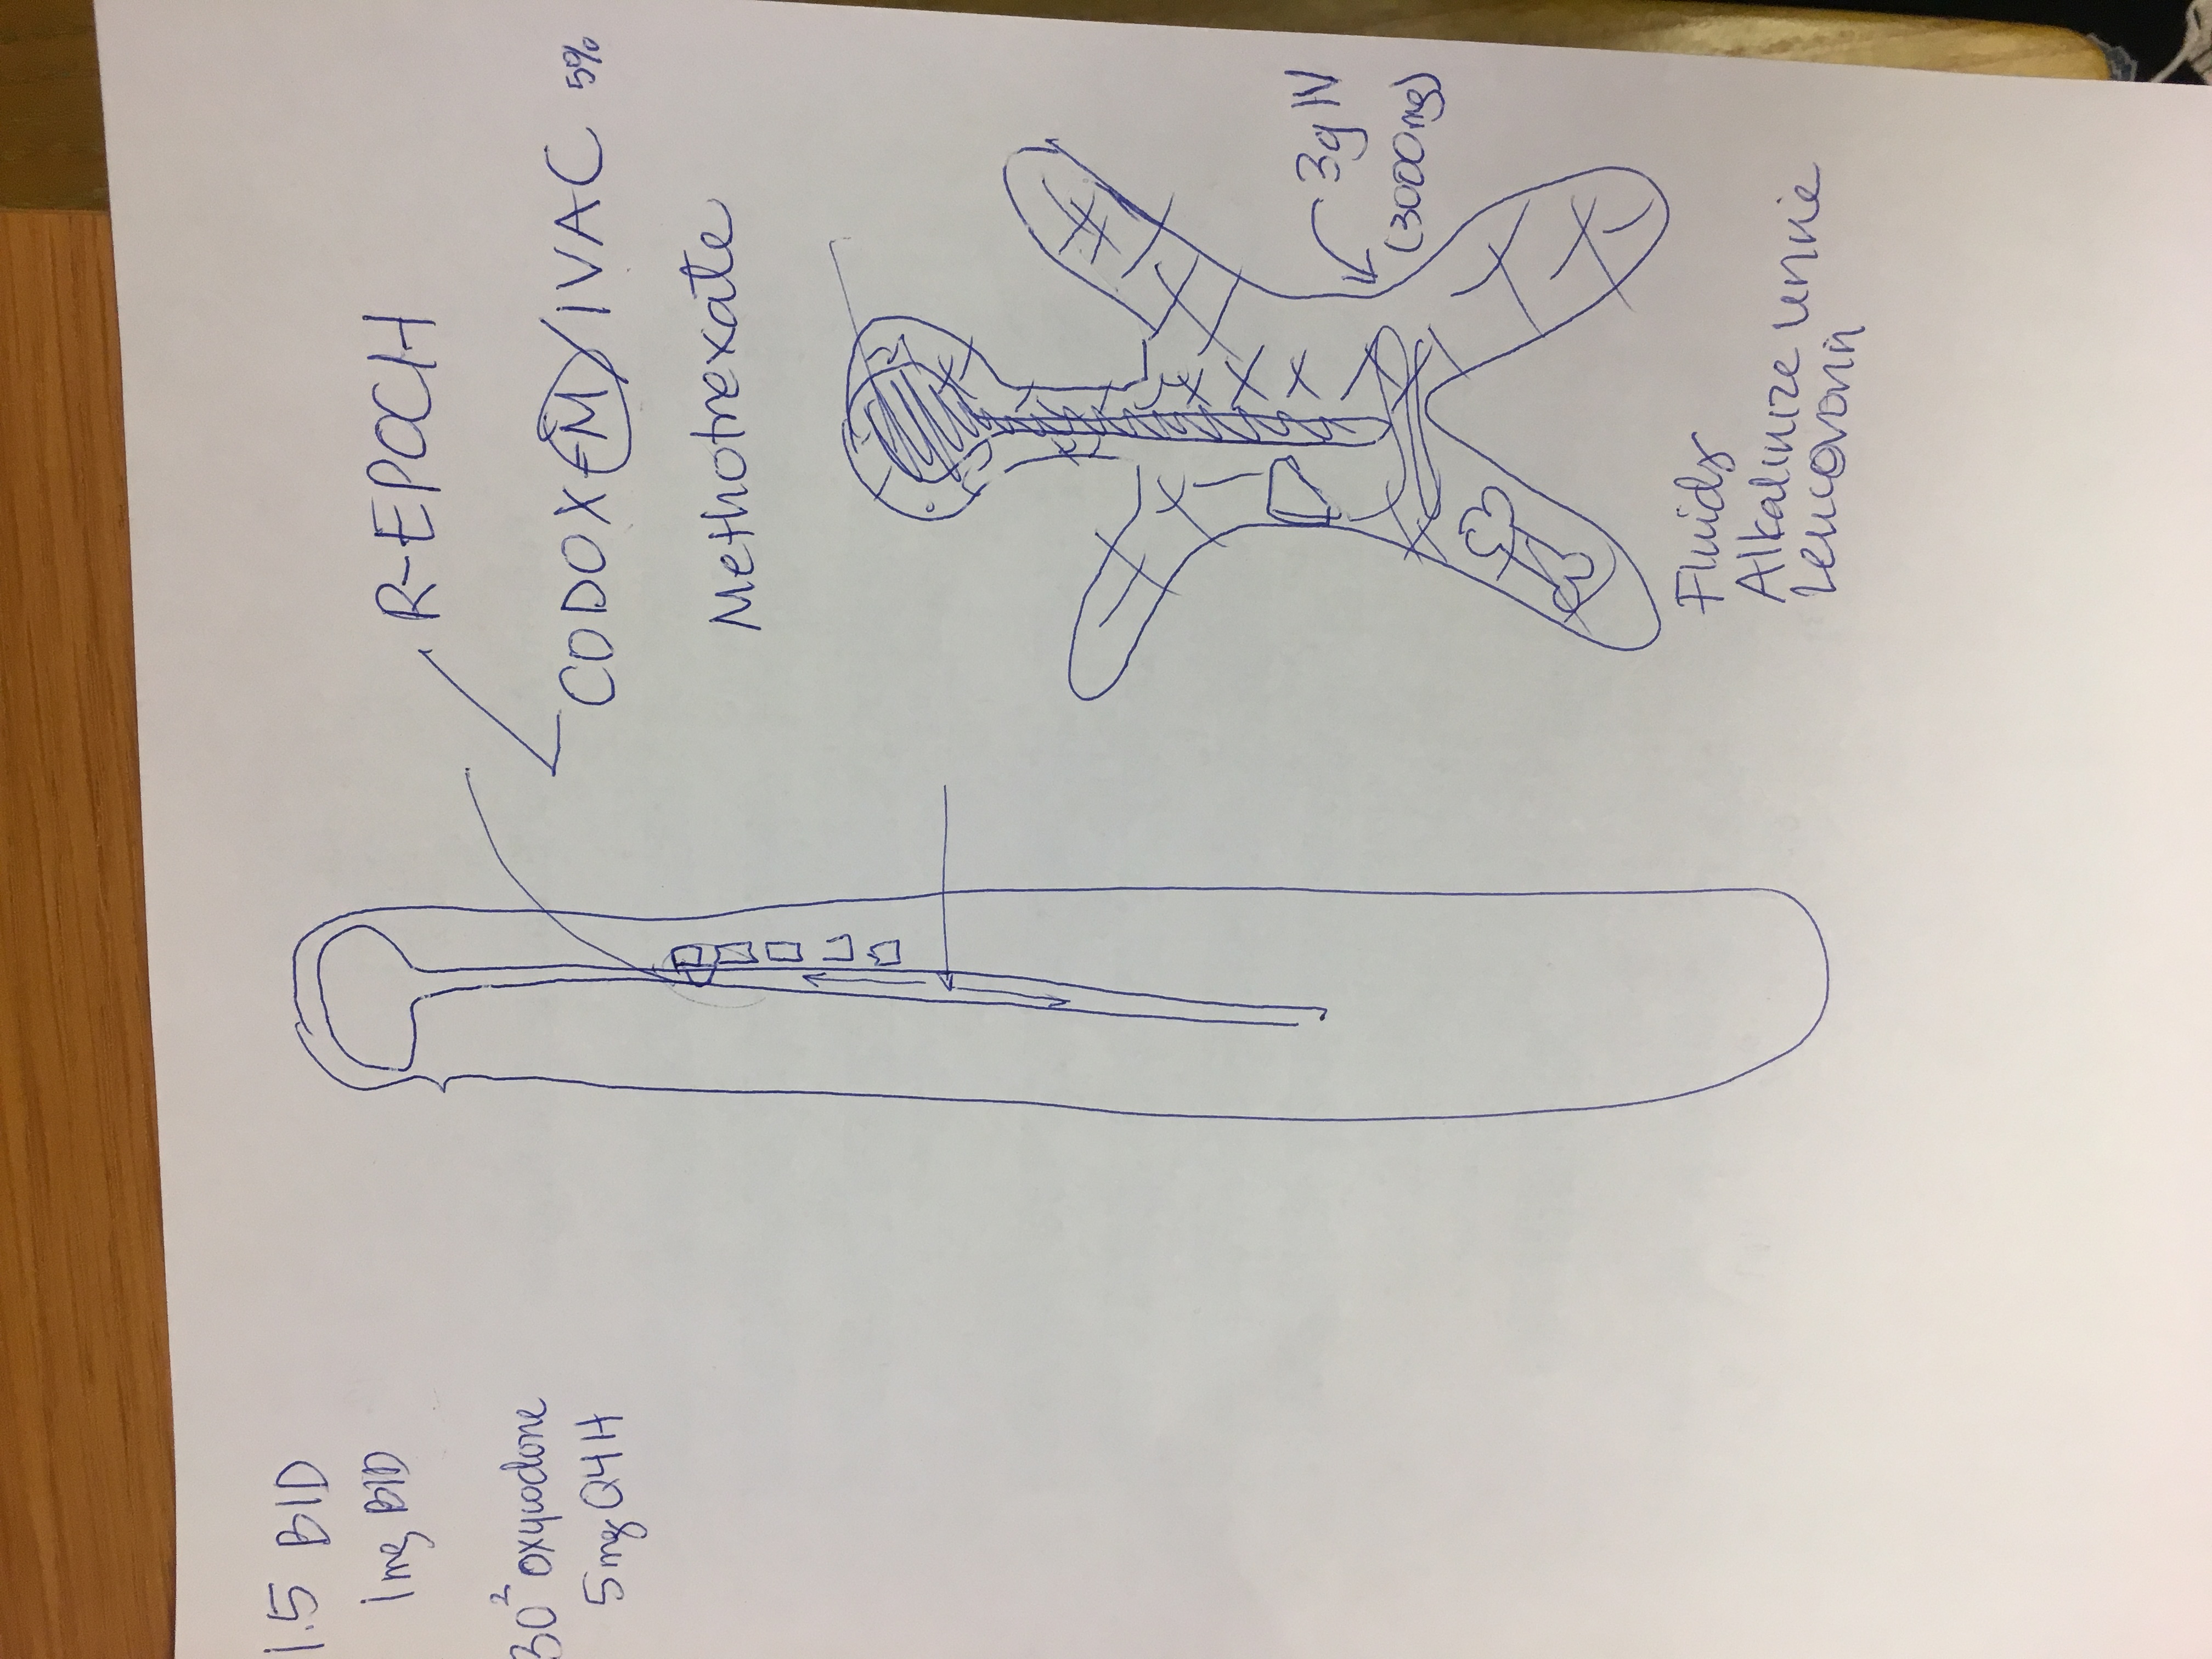 1.5 BID
1mg BID
30² oxycodone
5mg Q4H
R-EPOCH
CODOX-M/IVAC 5%
Methotrexate
3g IV
(3000mg)
Fluids
Alkalinize urine
leucovorin